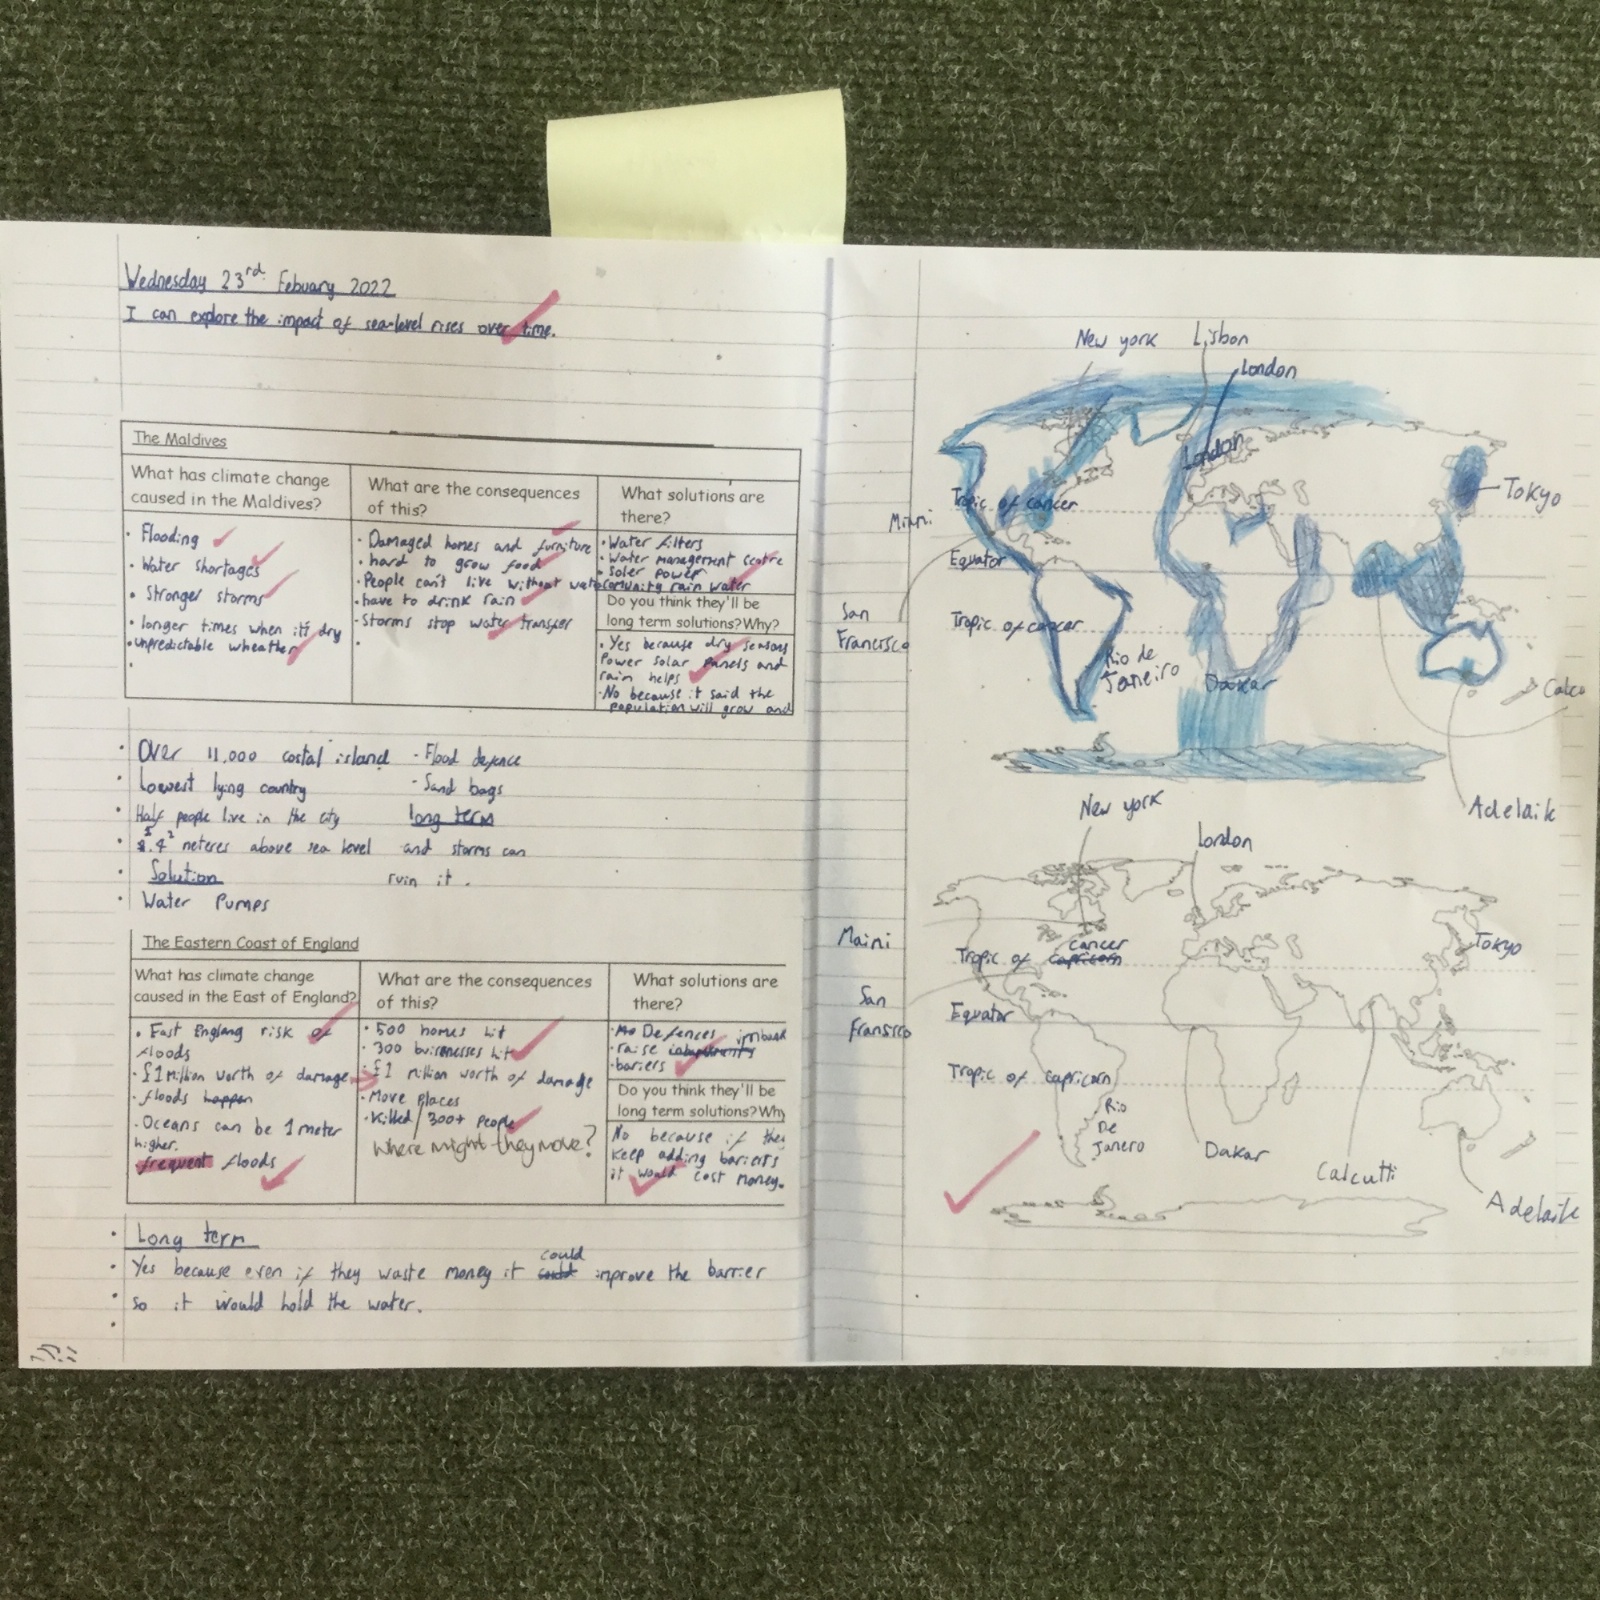 Wednesday 23rd Febuary 2022
I can explore the impact of sea-level rises over time.
The Maldives
What has climate change
caused in the Maldives?
· Flooding
· Water shortages
· Stronger storms
· longer times when it's dry
· unpredictable wheather
What are the consequences
of this?
· Damaged homes and furniture
· hard to grow food
· People can't live without water
· have to drink rain
· Storms stop water transfer
What solutions are
there?
· Water filters
· Water management centre
· Soler power
comunity rain water
Do you think they'll be
long term solutions? Why?
· Yes because dry seasons
Power solar panels and
rain helps
· No because it said the
population will grow and
· Over 11,000 costal island
· Lowest lying country
· Half people live in the city
meteres above sea level
· Solution
· Water Pumps
- Flood defence
- Sand bags
long term
and storms can
ruin it.
The Eastern Coast of England
What has climate change
caused in the East of England?
· East England risk of
floods
· £1 million worth of damage
· floods happen
· Oceans can be 1 meter
higher.
frequent floods
What are the consequences
of this?
· 500 homes hit
· 300 buisnesses hit
· £1 million worth of damage
· Move places
· Killed / 300+ people
Where might they move?
What solutions are
there?
Defences
· raise
· bariers
Do you think they'll be
long term solutions? Why
No because if they
keep adding barierts
it would cost money.
· Long term
· Yes because even if they waste money it could improve the barrier
· so it would hold the water.
New york
Lisbon
London
London
Tropic of cancer
Tokyo
Miami
Equator
San
Francisco
Tropic of cancer
Rio de
Janeiro
Dakar
Calco
Adelaik
New york
London
Maini
cancer
Tropic of capricorn
Tokyo
San
Fransico
Equator
Tropic of capricorn
Rio
De
Janero
Dakar
Calcutti
Adelaik